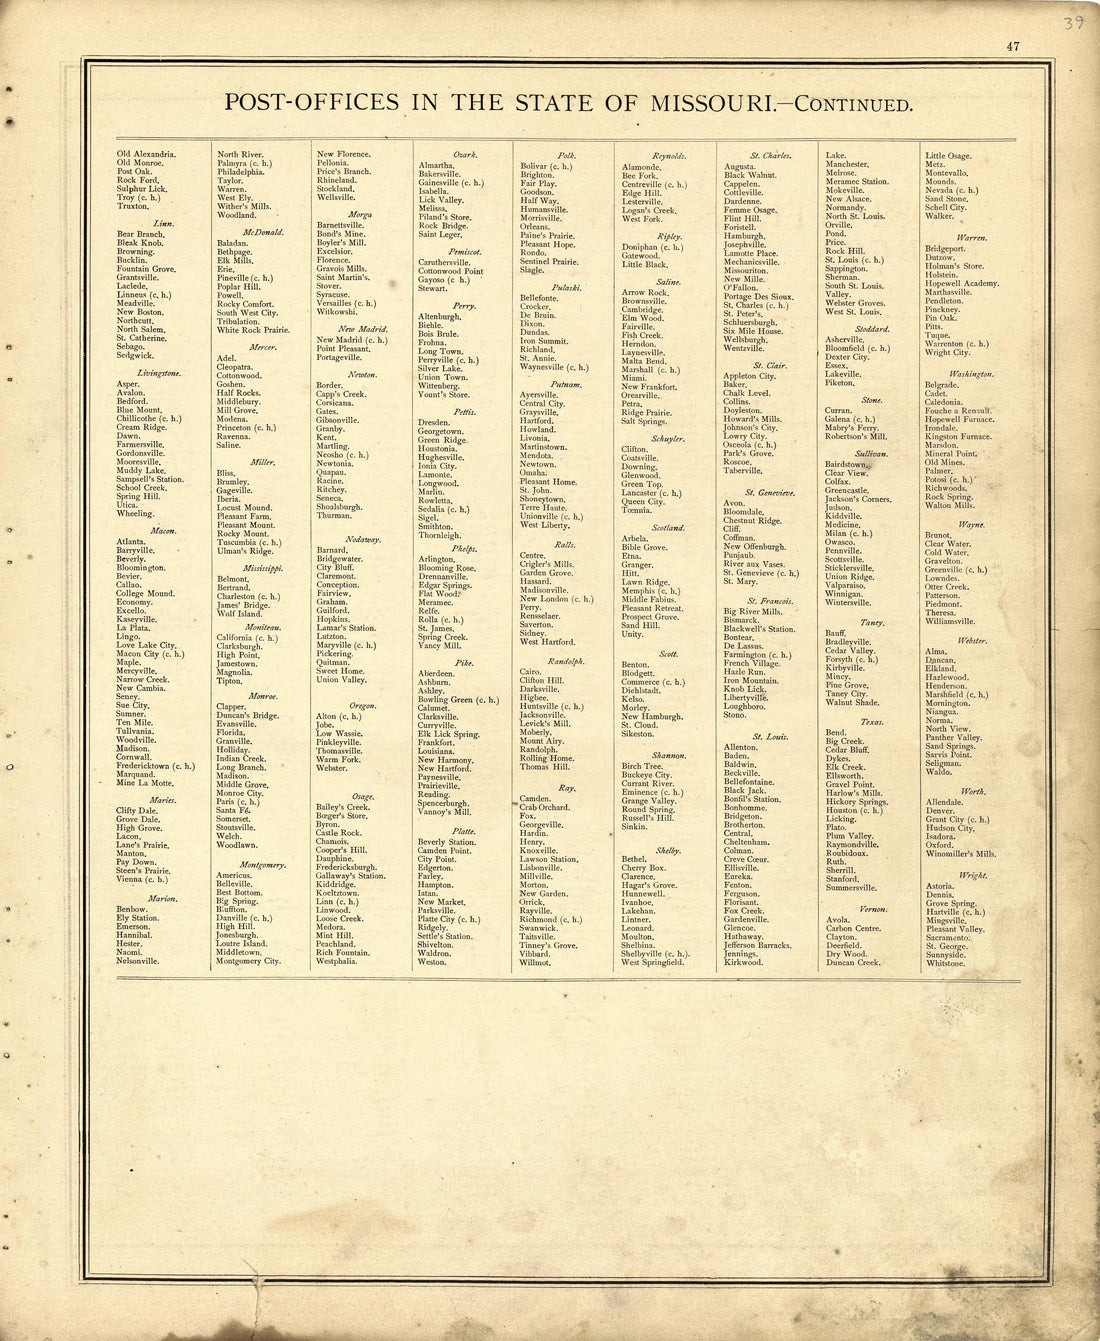 39
47
POST-OFFICES IN THE STATE OF MISSOURI.—CONTINUED.
Old Alexandria.
Old Monroe.
Post Oak.
Rock Ford.
Sulphur Lick.
Troy (c. h.)
Truxton.
Linn.
Bear Branch.
Bleak Knob.
Browning.
Bucklin.
Fountain Grove.
Grantsville.
Laclede.
Linneus (c. h.)
Meadville.
New Boston.
Northcutt.
North Salem.
St. Catherine.
Sebago.
Sedgwick.
Livingstone.
Asper.
Avalon.
Bedford.
Blue Mount.
Chillicothe (c. h.)
Cream Ridge.
Dawn.
Farmersville.
Gordonsville.
Mooresville.
Muddy Lake.
Sampsell's Station.
School Creek.
Spring Hill.
Utica.
Wheeling.
Macon.
Atlanta.
Barryville.
Beverly.
Bloomington.
Bevier.
Callao.
College Mound.
Economy.
Excello.
Kaseyville.
La Plata.
Lingo.
Love Lake City.
Macon City (c. h.)
Maple.
Mercyville.
Narrow Creek.
New Cambia.
Seney.
Sue City.
Sumner.
Ten Mile.
Tullvania.
Woodville.
Madison.
Cornwall.
Fredericktown (c. h.)
Marquand.
Mine La Motte.
Maries.
Clifty Dale.
Grove Dale.
High Grove.
Lacon.
Lane's Prairie.
Manton.
Pay Down.
Steen's Prairie.
Vienna (c. h.)
Marion.
Benbow.
Ely Station.
Emerson.
Hannibal.
Hester.
Naomi.
Nelsonville.
North River.
Palmyra (c. h.)
Philadelphia.
Taylor.
Warren.
West Ely.
Wither's Mills.
Woodland.
McDonald.
Baladan.
Bethpage.
Elk Mills.
Erie.
Pineville (c. h.)
Poplar Hill.
Powell.
Rocky Comfort.
South West City.
Tribulation.
White Rock Prairie.
Mercer.
Adel.
Cleopatra.
Cottonwood.
Goshen.
Half Rocks.
Middlebury.
Mill Grove.
Modena.
Princeton (c. h.)
Ravenna.
Saline.
Miller.
Bliss.
Brumley.
Gageville.
Iberia.
Locust Mound.
Pleasant Farm.
Pleasant Mount.
Rocky Mount.
Tuscumbia (c. h.)
Ulman's Ridge.
Mississippi.
Belmont.
Bertrand.
Charleston (c. h.)
James' Bridge.
Wolf Island.
Moniteau.
California (c. h.)
Clarksburgh.
High Point.
Jamestown.
Magnolia.
Tipton.
Monroe.
Clapper.
Duncan's Bridge.
Evansville.
Florida.
Granville.
Holliday.
Indian Creek.
Long Branch.
Madison.
Middle Grove.
Monroe City.
Paris (c. h.)
Santa Fé.
Somerset.
Stoutsville.
Welch.
Woodlawn.
Montgomery.
Americus.
Belleville.
Best Bottom.
Big Spring.
Bluffton.
Danville (c. h.)
High Hill.
Jonesburgh.
Loutre Island.
Middletown.
Montgomery City.
New Florence.
Pellonia.
Price's Branch.
Rhineland.
Stockland.
Wellsville.
Morga
Barnettsville.
Bond's Mine.
Boyler's Mill.
Excelsior.
Florence.
Gravois Mills.
Saint Martin's.
Stover.
Syracuse.
Versailles (c. h.)
Witkowski.
New Madrid.
New Madrid (c. h.)
Point Pleasant.
Portageville.
Newton.
Border.
Capp's Creek.
Corsicana.
Gates.
Gibsonville.
Granby.
Kent.
Martling.
Neosho (c. h.)
Newtonia.
Quapau.
Racine.
Ritchey.
Seneca.
Shoalsburgh.
Thurman.
Nodaway.
Barnard.
Bridgewater.
City Bluff.
Claremont.
Conception.
Fairview.
Graham.
Guilford.
Hopkins.
Lamar's Station.
Lutzton.
Maryville (c. h.)
Pickering.
Quitman.
Sweet Home.
Union Valley.
Oregon.
Alton (c. h.)
Jobe.
Low Wassie.
Pinkleyville.
Thomasville.
Warm Fork.
Webster.
Osage.
Bailey's Creek.
Borger's Store.
Byron.
Castle Rock.
Chamois.
Cooper's Hill.
Dauphine.
Fredericksburgh.
Gallaway's Station.
Kiddridge.
Koeltztown.
Linn (c. h.)
Linwood.
Loose Creek.
Medora.
Mint Hill.
Peachland.
Rich Fountain.
Westphalia.
Ozark.
Almartha.
Bakersville.
Gainesville (c. h.)
Isabella.
Lick Valley.
Melissa.
Piland's Store.
Rock Bridge.
Saint Leger.
Pemiscot.
Caruthersville.
Cottonwood Point
Gayoso (c. h.)
Stewart.
Perry.
Altenburgh.
Biehle.
Bois Brule.
Frohna.
Long Town.
Perryville (c. h.)
Silver Lake.
Union Town.
Wittenberg.
Yount's Store.
Pettis.
Dresden.
Georgetown.
Green Ridge.
Houstonia.
Hughesville.
Ionia City.
Lamonte.
Longwood.
Marlin.
Rowletta.
Sedalia (c. h.)
Sigel.
Smithton.
Thornleigh.
Phelps.
Arlington.
Blooming Rose.
Drennanville.
Edgar Springs.
Flat Wood.
Meramec.
Relfe.
Rolla (c. h.)
St. James.
Spring Creek.
Yancy Mill.
Pike.
Aberdeen.
Ashburn.
Ashley.
Bowling Green (c. h.)
Calumet.
Clarksville.
Curryville.
Elk Lick Spring.
Frankfort.
Louisiana.
New Harmony.
New Hartford.
Paynesville.
Prairieville.
Reading.
Spencerburgh.
Vannoy's Mill.
Platte.
Beverly Station.
Camden Point.
City Point.
Edgerton.
Farley.
Hampton.
Iatan.
New Market.
Parksville.
Platte City (c. h.)
Ridgely.
Settle's Station.
Shivelton.
Waldron.
Weston.
Polk.
Bolivar (c. h.)
Brighton.
Fair Play.
Goodson.
Half Way.
Humansville.
Morrisville.
Orleans.
Paine's Prairie.
Pleasant Hope.
Rondo.
Sentinel Prairie.
Slagle.
Pulaski.
Bellefonte.
Crocker.
De Bruin.
Dixon.
Dundas.
Iron Summit.
Richland.
St. Annie.
Waynesville (c. h.)
Putnam.
Ayersville.
Central City.
Graysville.
Hartford.
Howland.
Livonia.
Martinstown.
Mendota.
Newtown.
Omaha.
Pleasant Home.
St. John.
Shoneytown.
Terre Haute.
Unionville (c. h.)
West Liberty.
Ralls.
Centre.
Crigler's Mills.
Garden Grove.
Hassard.
Madisonville.
New London (c. h.)
Perry.
Rensselaer.
Saverton.
Sidney.
West Hartford.
Randolph.
Cairo.
Clifton Hill.
Darksville.
Higbee.
Huntsville (c. h.)
Jacksonville.
Levick's Mill.
Moberly.
Mount Airy.
Randolph.
Rolling Home.
Thomas Hill.
Ray.
Camden.
Crab Orchard.
Fox.
Georgeville.
Hardin.
Henry.
Knoxville.
Lawson Station.
Lisbonville.
Millville.
Morton.
New Garden.
Orrick.
Rayville.
Richmond (c. h.)
Swanwick.
Taitsville.
Tinney's Grove.
Vibbard.
Willmot.
Reynolds.
Alamonde.
Bee Fork.
Centreville (c. h.)
Edge Hill.
Lesterville.
Logan's Creek.
West Fork.
Ripley.
Doniphan (c. h.)
Gatewood.
Little Black.
Saline.
Arrow Rock.
Brownsville.
Cambridge.
Elm Wood.
Fairville.
Fish Creek.
Herndon.
Laynesville.
Malta Bend.
Marshall (c. h.)
Miami.
New Frankfort.
Orearville.
Petra.
Ridge Prairie.
Salt Springs.
Schuyler.
Clifton.
Coatsville.
Downing.
Glenwood.
Green Top.
Lancaster (c. h.)
Queen City.
Tœnnia.
Scotland.
Arbela.
Bible Grove.
Etna.
Granger.
Hitt.
Lawn Ridge.
Memphis (c. h.)
Middle Fabius.
Pleasant Retreat.
Prospect Grove.
Sand Hill.
Unity.
Scott.
Benton.
Blodgett.
Commerce (c. h.)
Diehlstadt.
Kelso.
Morley.
New Hamburgh.
St. Cloud.
Sikeston.
Shannon.
Birch Tree.
Buckeye City.
Currant River.
Eminence (c. h.)
Grange Valley.
Round Spring.
Russell's Hill.
Sinkin.
Shelby.
Bethel.
Cherry Box.
Clarence.
Hagar's Grove.
Hunnewell.
Ivanhoe.
Lakehan.
Lintner.
Leonard.
Moulton.
Shelbina.
Shelbyville (c. h.).
West Springfield.
St. Charles.
Augusta.
Black Walnut.
Cappelen.
Cottleville.
Dardenne.
Femme Osage.
Flint Hill.
Foristell.
Hamburgh.
Josephville.
Lamotte Place.
Mechanicsville.
Missouriton.
New Mille.
O'Fallon.
Portage Des Sioux.
St. Charles (c. h.)
St. Peter's.
Schluersburgh.
Six Mile House.
Wellsburgh.
Wentzville.
St. Clair.
Appleton City.
Baker.
Chalk Level.
Collins.
Doyleston.
Howard's Mills.
Johnson's City.
Lowry City.
Osceola (c. h.)
Park's Grove.
Roscoe.
Taberville.
St. Genevieve.
Avon.
Bloomdale.
Chestnut Ridge.
Cliff.
Coffman.
New Offenburgh.
Punjaub.
River aux Vases.
St. Genevieve (c. h.)
St. Mary.
St. Francois.
Big River Mills.
Bismarck.
Blackwell's Station.
Bontear.
De Lassus.
Farmington (c. h.)
French Village.
Hazle Run.
Iron Mountain.
Knob Lick.
Libertyville.
Loughboro.
Stono.
St. Louis.
Allenton.
Baden.
Baldwin.
Beckville.
Bellefontaine.
Black Jack.
Bonfil's Station.
Bonhomme.
Bridgeton.
Brotherton.
Central.
Cheltenham.
Colman.
Creve Cœur.
Ellisville.
Eureka.
Fenton.
Ferguson.
Florisant.
Fox Creek.
Gardenville.
Glencoe.
Hathaway.
Jefferson Barracks.
Jennings.
Kirkwood.
Lake.
Manchester.
Melrose.
Meramec Station.
Mokeville.
New Alsace.
Normandy.
North St. Louis.
Orville.
Pond.
Price.
Rock Hill.
St. Louis (c. h.)
Sappington.
Sherman.
South St. Louis.
Valley.
Webster Groves.
West St. Louis.
Stoddard.
Asherville.
Bloomfield (c. h.)
Dexter City.
Essex.
Lakeville.
Piketon.
Stone.
Curran.
Galena (c. h.)
Mabry's Ferry.
Robertson's Mill.
Sullivan.
Bairdstown.
Clear View.
Colfax.
Greencastle.
Jackson's Corners.
Judson.
Kiddville.
Medicine.
Milan (c. h.)
Owasco.
Pennville.
Scottsville.
Sticklersville.
Union Ridge.
Valparaiso.
Winnigan.
Wintersville.
Taney.
Bauff.
Bradleyville.
Cedar Valley.
Forsyth (c. h.)
Kirbyville.
Mincy.
Pine Grove.
Taney City.
Walnut Shade.
Texas.
Bend.
Big Creek.
Cedar Bluff.
Dykes.
Elk Creek.
Ellsworth.
Gravel Point.
Harlow's Mills.
Hickory Springs.
Houston (c. h.)
Licking.
Plato.
Plum Valley.
Raymondville.
Roubidoux.
Ruth.
Sherrill.
Stanford.
Summersville.
Vernon.
Avola.
Carbon Centre.
Clayton.
Deerfield.
Dry Wood.
Duncan Creek.
Little Osage.
Metz.
Montevallo.
Mounds.
Nevada (c. h.)
Sand Stone.
Schell City.
Walker.
Warren.
Bridgeport.
Dutzow.
Holman's Store.
Holstein.
Hopewell Academy.
Marthasville.
Pendleton.
Pinckney.
Pin Oak.
Pitts.
Tuque.
Warrenton (c. h.)
Wright City.
Washington.
Belgrade.
Cadet.
Caledonia.
Fouche a Renault.
Hopewell Furnace.
Irondale.
Kingston Furnace.
Marsdon.
Mineral Point.
Old Mines.
Palmer.
Potosi (c. h.)
Richwoods.
Rock Spring.
Walton Mills.
Wayne.
Brunot.
Clear Water.
Cold Water.
Gravelton.
Greenville (c. h.)
Lowndes.
Otter Creek.
Patterson.
Piedmont.
Theresa.
Williamsville.
Webster.
Alma.
Duncan.
Elkland.
Hazlewood.
Henderson.
Marshfield (c. h.)
Mornington.
Niangua.
Norma.
North View.
Panther Valley.
Sand Springs.
Sarvis Point.
Seligman.
Waldo.
Worth.
Allendale.
Denver.
Grant City (c. h.)
Hudson City.
Isadora.
Oxford.
Winomiller's Mills.
Wright.
Astoria.
Dennis.
Grove Spring.
Hartville (c. h.)
Mingsville.
Pleasant Valley.
Sacramento.
St. George.
Sunnyside.
Whitstone.